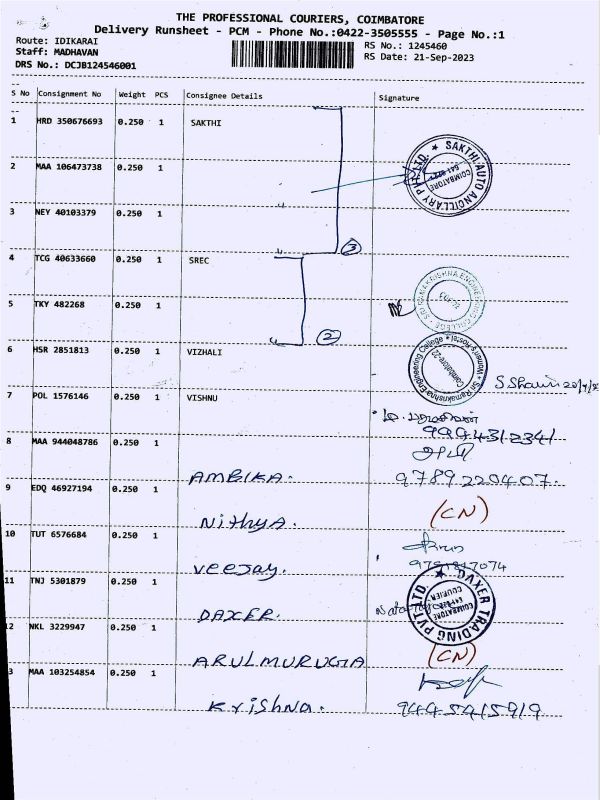 THE PROFESSIONAL COURIERS, COIMBATORE
Delivery Runsheet - PCM - Phone No.:0422-3505555 - Page No.:1
Route: IDIKARAI
Staff: MADHAVAN
DRS No.: DCJB124546001
RS No.: 1245460
RS Date: 21-Sep-2023
S No Consignment No Weight PCS Consignee Details Signature
1 HRD 350676693 0.250 1 SAKTHI
2 MAA 106473738 0.250 1
SAKTHI AUTO ANCILLARY PVT. LTD.
COIMBATORE
3 NEY 40103379 0.250 1
3
4 TCG 40633660 0.250 1 SREC
5 TKY 482268 0.250 1
SRI RAMAKRISHNA ENGINEERING COLLEGE
2
6 HSR 2851813 0.250 1 VIZHALI
Sri Ramakrishna Engineering College Women's Hostel
Coimbatore-22
7 POL 1576146 0.250 1 VISHNU
9994312341
8 MAA 944048786 0.250 1
AMBIKA. 9789220407.
9 EDQ 46927194 0.250 1
Nithya. (CN)
10 TUT 6576684 0.250 1
Veejay.
11 TNJ 5301879 0.250 1
DAXER.
DAXER TRADING PVT LTD.
COIMBATORE
COURIER
2 NKL 3229947 0.250 1
ARULMURUGA (CN)
3 MAA 103254854 0.250 1
Krishna. 9445915919